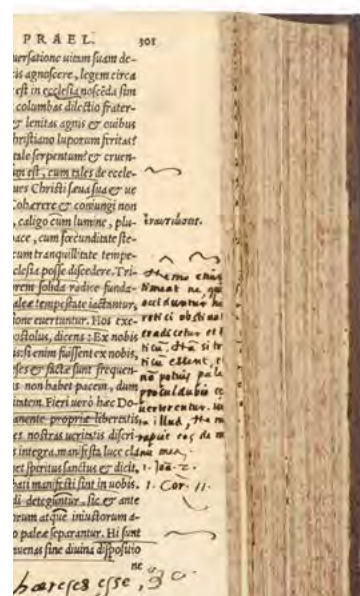 PRAEL. 301
uersatione uitam suam de-
is agnoscere, legem circa
est in ecclesia noscẽda sim
columbas dilectio frater-
& lenitas agnis & ouibus
hristiano luporum feritas?
tale serpentum? & cruen-
um est, cum tales de eccle-
ues Christi sæua sua & ue
Cohærere & coniungi non
, caligo cum lumine, plu-
pace, cum fœcunditate ste-
cum tranquillitate tempe-
clesia posse discedere. Tri-
rem solida radice funda-
aleæ tempestate iactantur,
ione euertuntur. Hos exe-
ostolus, dicens: Ex nobis
is: si enim fuissent ex nobis,
ses & factæ sunt frequen-
s non habet pacem, dum
itatem. Fieri uerò hæc Do-
anente propriæ libertatis
es nostras ueritatis discri-
s integra manifesta luce cla
et spiritus sanctus & dicit,
bati manifesti sint in uobis.
di deteguntur, sic & ante
orum atque iniustorum a-
o paleæ separantur. Hi sunt
uenas sine diuina dispositio
ne
ἐναντιώσεις.
Nemo
timeat ne
occiduntur
retici obstinat
eradicetur et
ticũ. Nã si tr
ticũ essent,
nõ potius pale
proculdubio
uerterentur.
illud,
rapiet eos de m
nu mea.
1. Joã. 2.
1. Cor. 11.
hæreses esse,